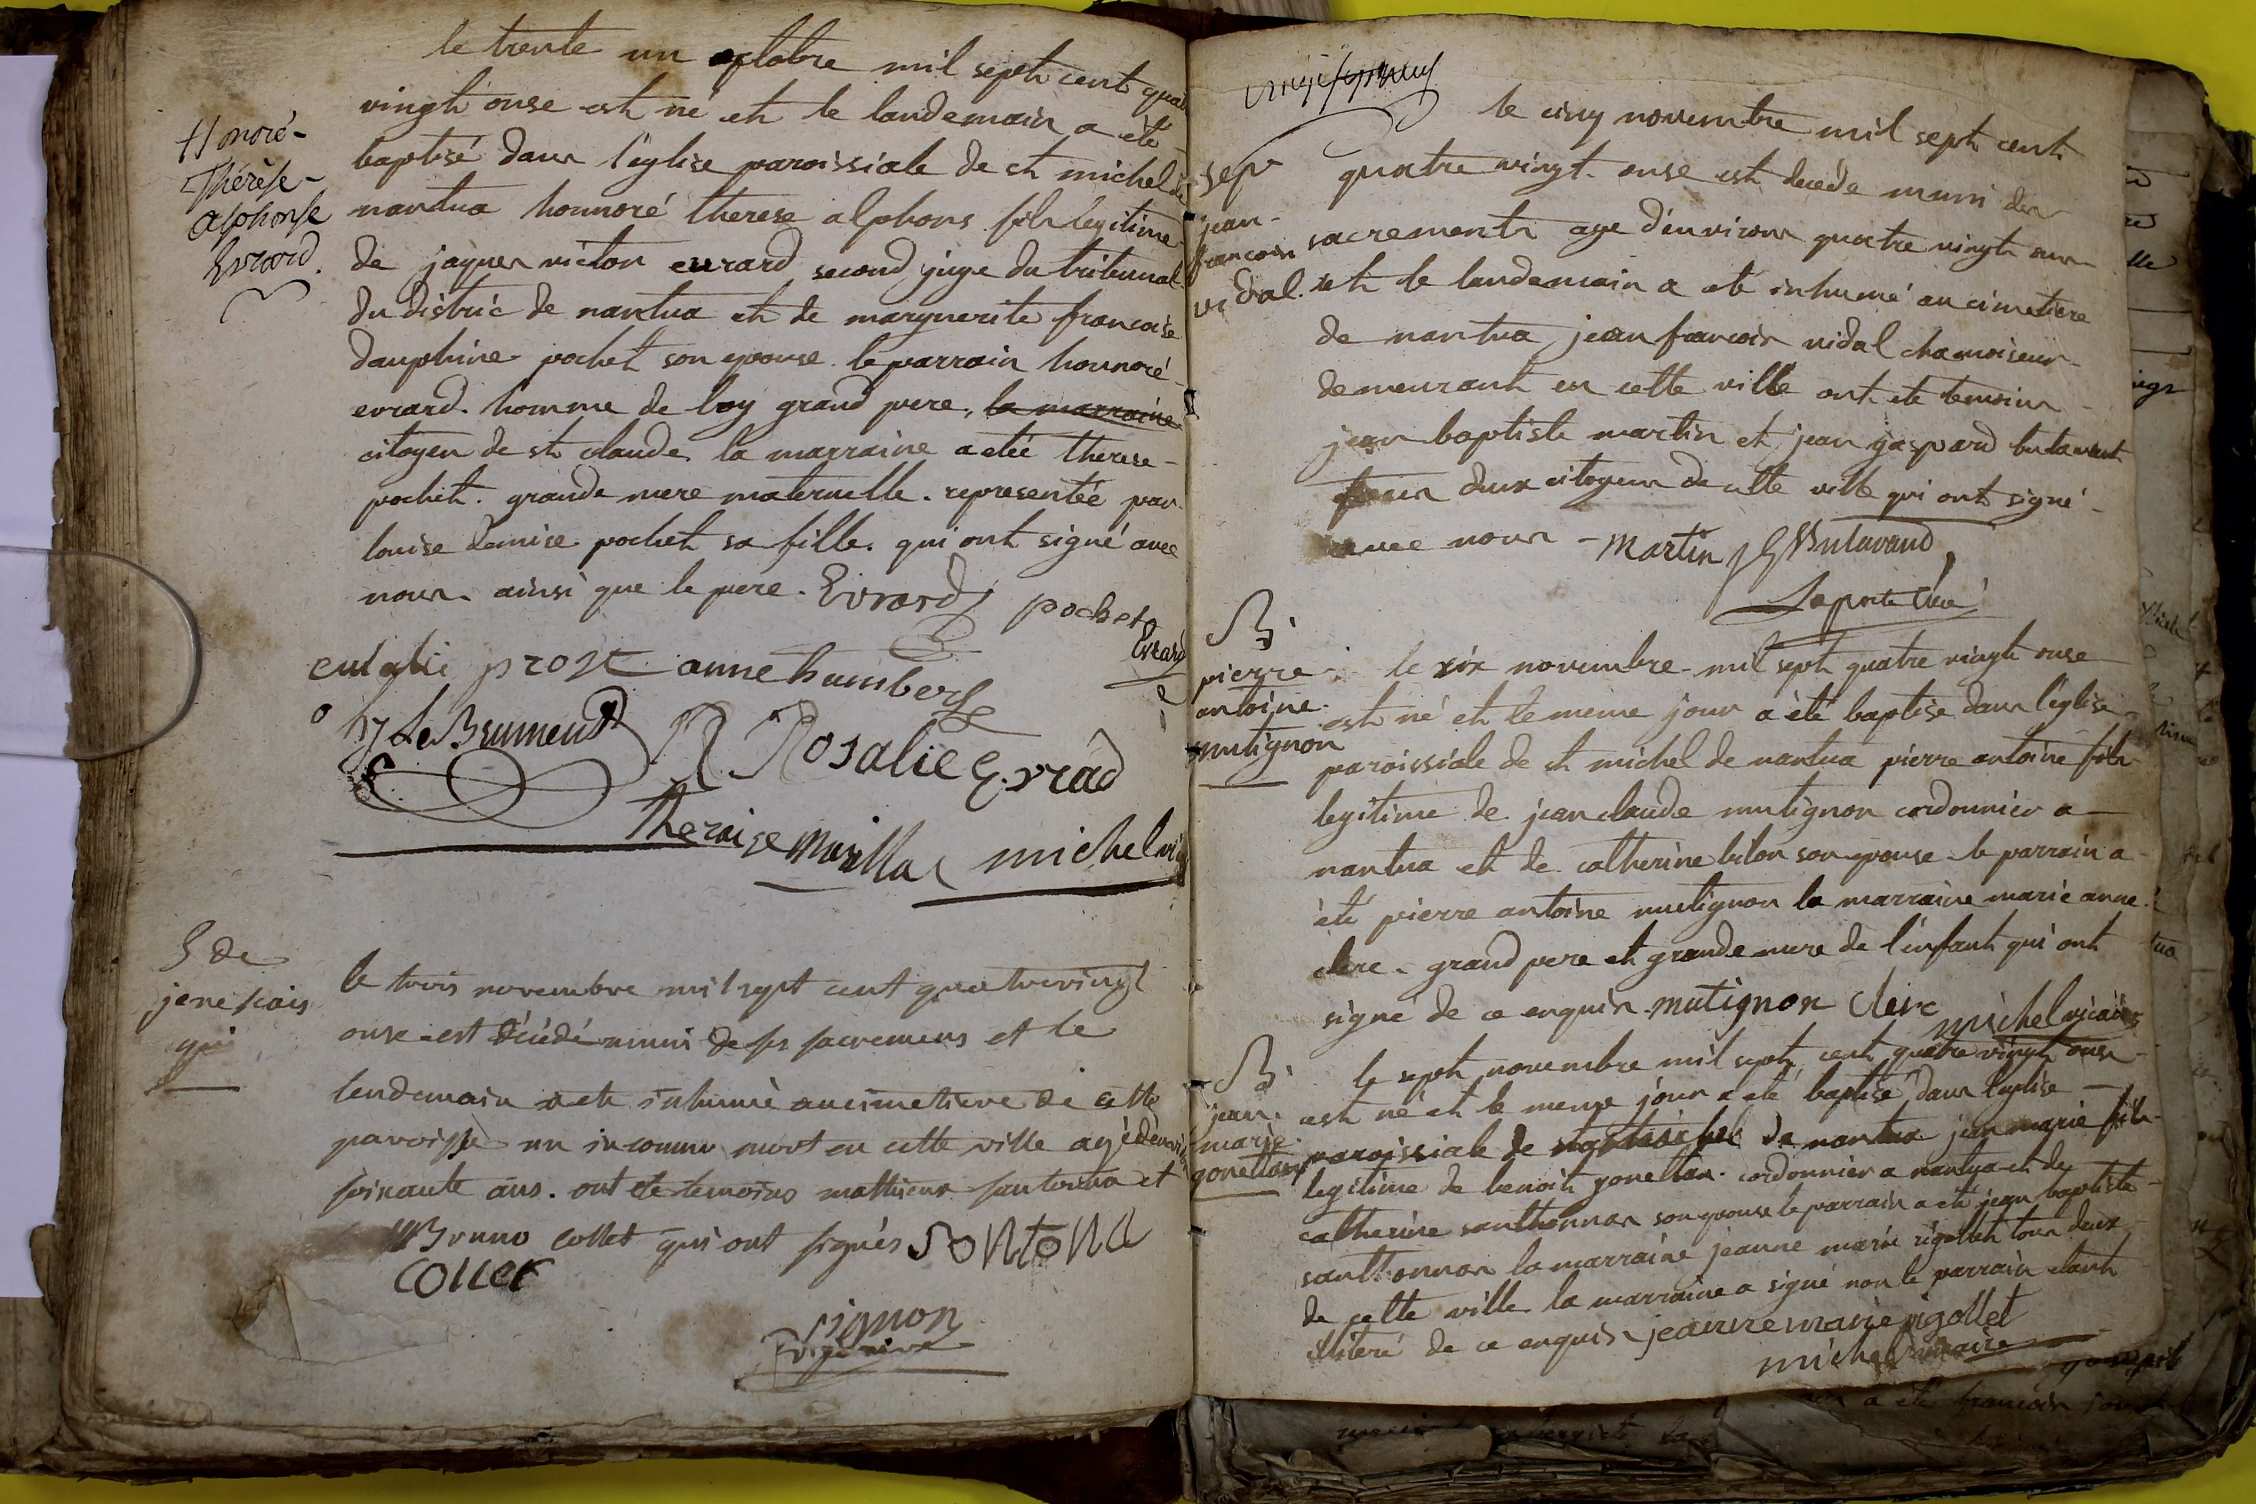 Honoré-
Thérèse-
alphonse
Evrard.
le trente un octobre mil septh cent quat
vingth onse est né eth le landemain a été
baptisé dans l'eglise paroissiale de sth michel de
nantua honnoré therese alphons fils legitime
de jaques victor evrard second juge du tribunal
du distric de nantua eth de marguerite francoise
dauphine pocheth son epouse le parrain honnoré
evrard. homme de loy grand pere, la marraine
citoyen de sth claude la marraine a étée therese-
pocheth. grande mere maternelle. representée par
louise denise pocheth sa fille. qui onth signé avec
nous. ainsi que le pere. Evrard pochet
Evrard
eulalie prost anne humbert
Le Brument
Rosalie Evrad
theraise Maillas michel vic
S de
je ne scais
qui
le trois novembre mil sept cent quatrevingt
onse est décédé munis de ses sacremens et le
lendemain a ete inhumé au cimetiere de cette
paroisse un inconnu mort en cette ville agé d'environ
soixante ans. ont ete temoins mathieux santonna et
Bruno collet qui ont signés SoNtoNa
Collet
signon
vicaire
sepr
jean-
francois
vidal.
le cinq novembre mil septh centh
quatre vingt onse esth decede muni des
sacrements age d'environs quatre vingth ans
eth le landemain a été inhumé au cimetiere
de nantua jean francois vidal chamoiseur
demeuranth en cette ville onth ete temoins
jean baptiste martin eth jean gaspard butavant
tous deux citoyens de cette ville qui onth signé
avec nous - Martin JG Butavand
Laporte Curé
B.
pierre
antoine.
mutignon
le six novembre mil septh quatre vingth onse
esth né eth le meme jour a été baptise dans l'eglise
paroissiale de sth michel de nantua pierre antoine fils
legitime de jean claude mutignon cordonnier a
nantua eth de catherine bilon son epouse le parrain a
été pierre antoine mutignon la marraine marie anne
clerc. grand pere eth grande mere de l'enfanth qui onth
signé de ce enquis. mutignon Clerc
michel vicaire
B.
jean.
marie.
gonettan
le septh novembre mil septh centh quatre vingth onse
esth né eth le meme jour a été baptisé dans l'eglise
paroissiale de sth michel de nantua jean marie fils
legitime de benoith gonettan. cordonnier a nantua eth de
catherine santhonnax son epouse le parrain a été jean baptiste
santhonnax la marraine jeanne marie rigolleth tous deux
de cette ville la marraine a signé non le parrain etanth
illiteré de ce enquis jeanne marie rigollet
michel vicaire